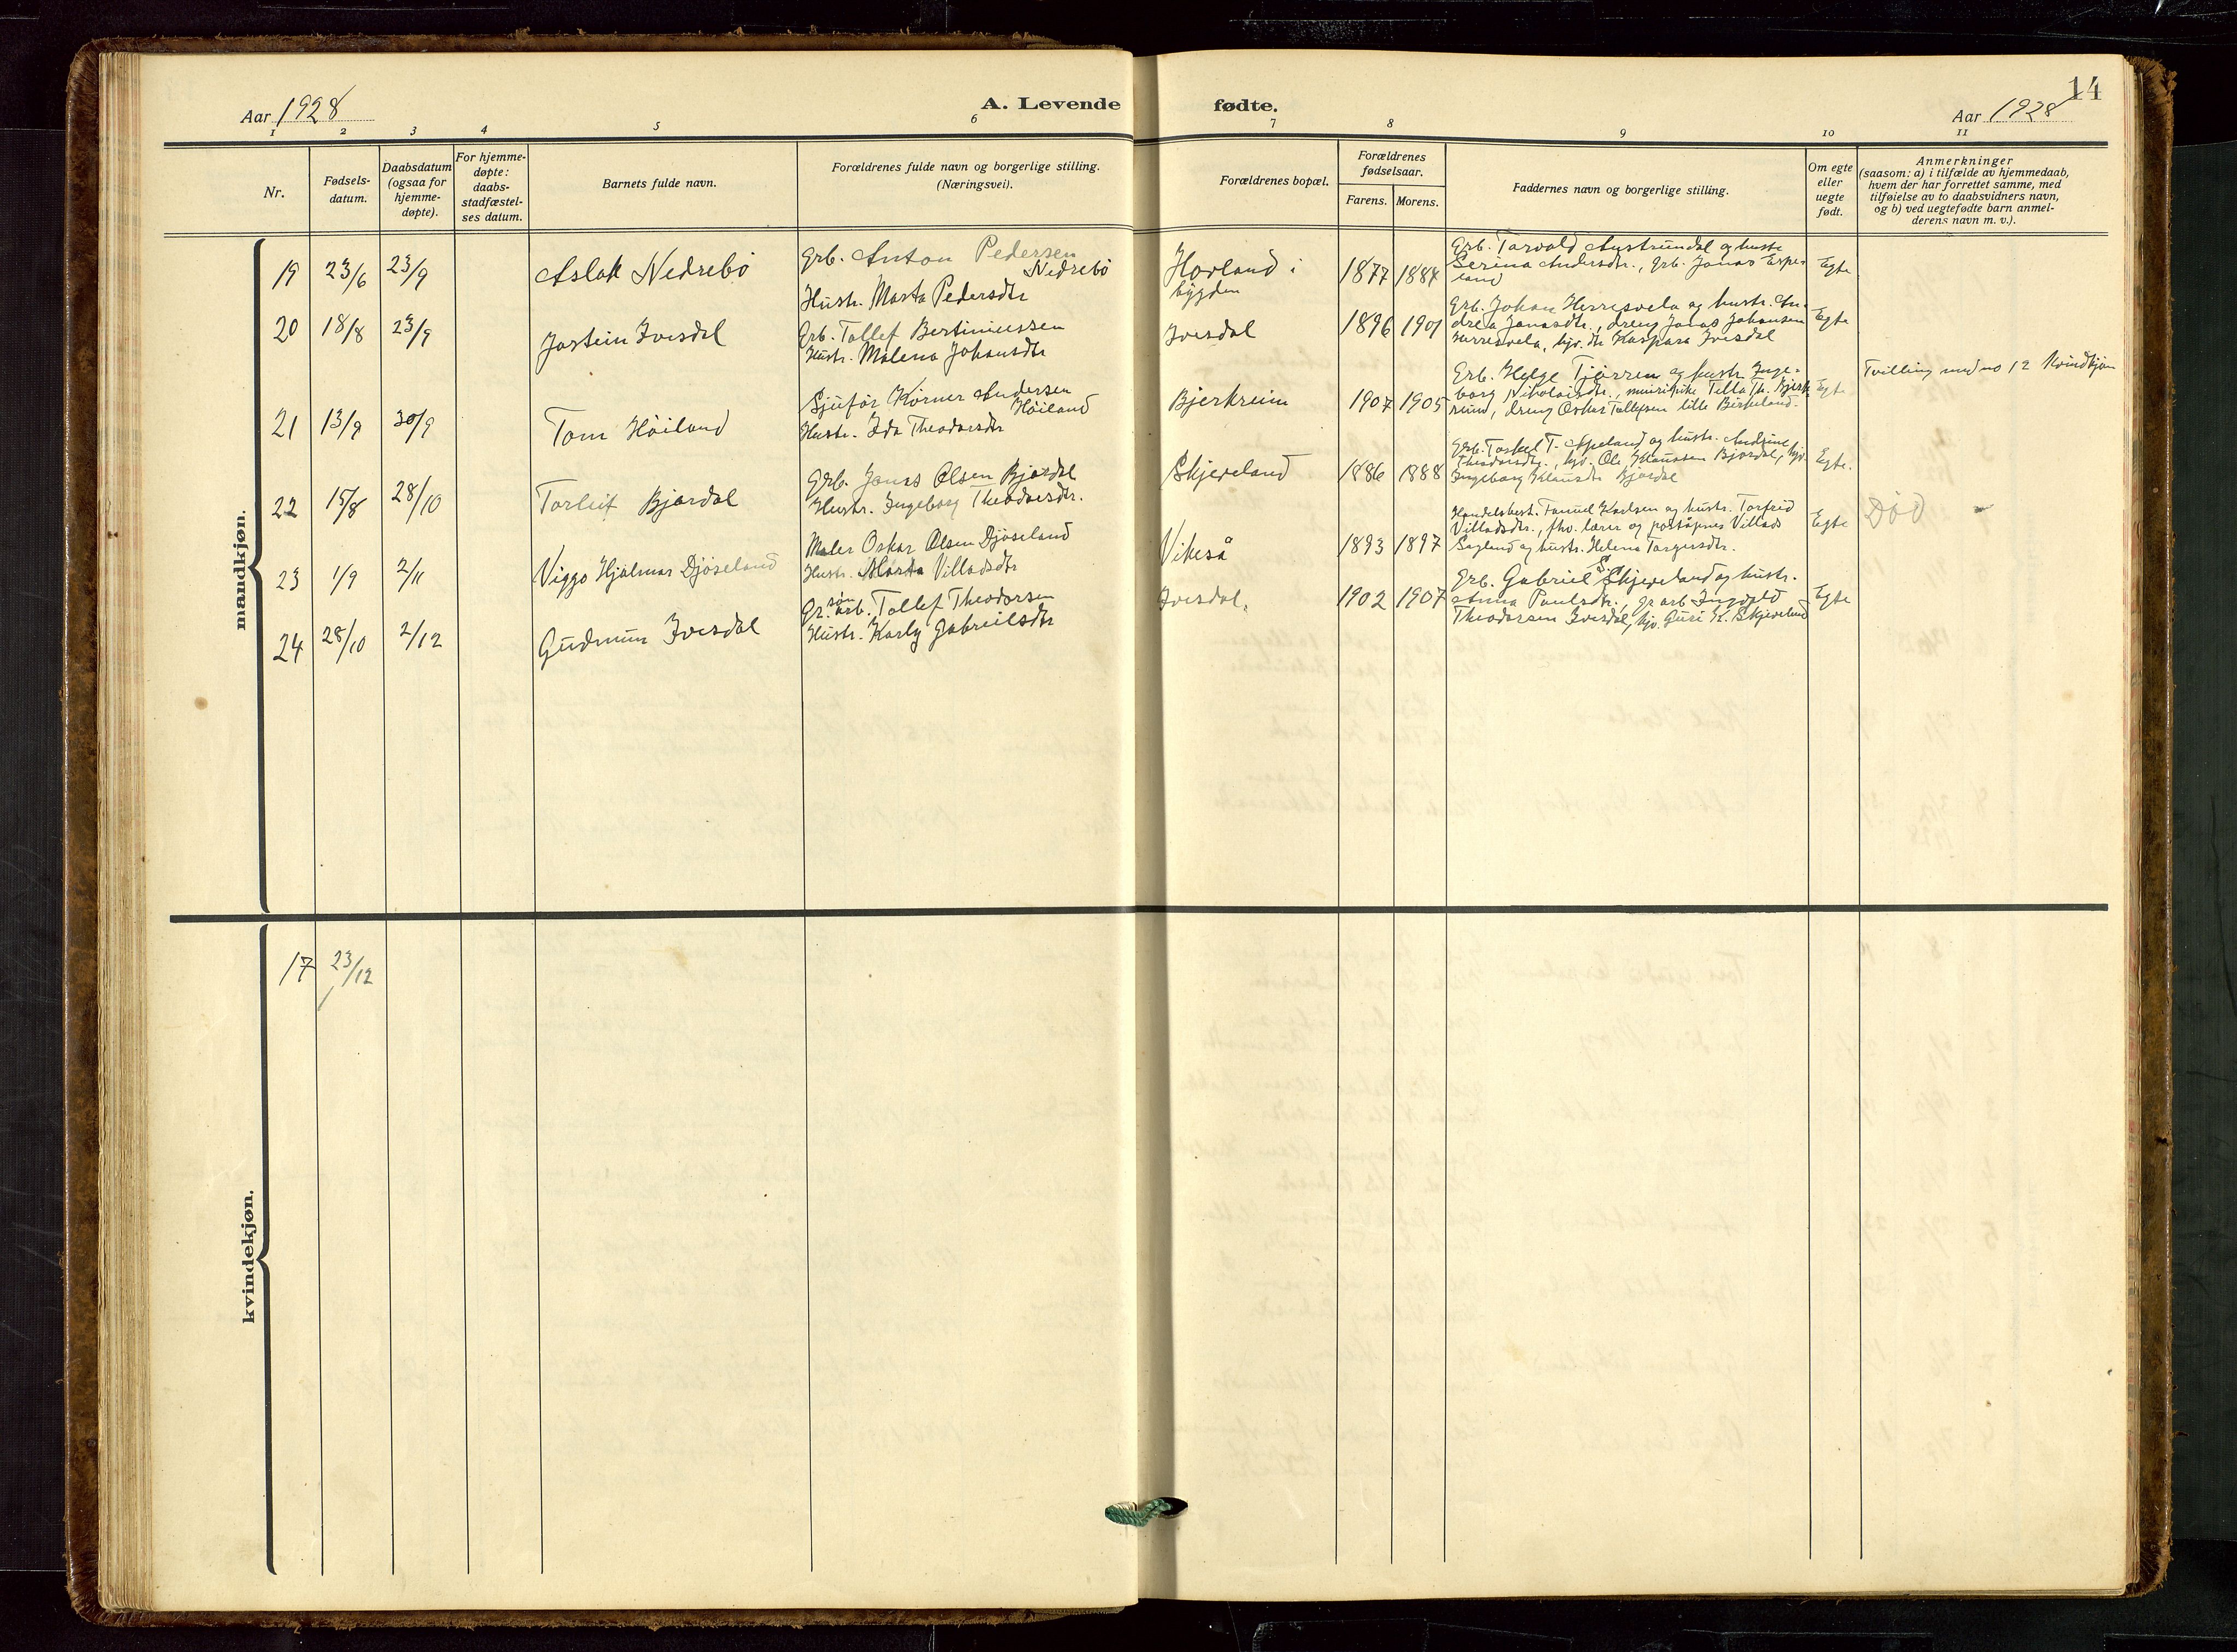 Aar 1928
A. Levende fødte.
14
Aar 1928
1 2 3 4 5 6 7 8 9 10 11
Nr.
Fødsels-
datum.
Daabsdatum
(ogsaa for
hjemme-
døpte).
For hjemme-
døpte:
daabs-
stadfæstel-
ses datum.
Barnets fulde navn.
Forældrenes fulde navn og borgerlige stilling.
(Næringsvei).
Forældrenes bopæl.
Forældrenes
fødselsaar.
Farens. Morens.
Faddernes navn og borgerlige stilling.
Om egte
eller
uegte
født.
Anmerkninger
(saasom: a) i tilfælde av hjemmedaab,
hvem der har forrettet samme, med
tilføielse av to daabsvidners navn,
og b) ved uegtefødte barn anmel-
derens navn m. v.).
mandkjøn.
19 23/6 23/9 Aslak Nedrebö
Grb. Anton Pedersen
Nedrebö
Hustr. Marta Pedersdtr
Hovland i
bygden
1877 1884
Grb. Tarvald Austrumdal og hustr
Serina Andersdtr., grb. Jonas Espe-
land
Egte
20 18/8 23/9 Jostein Ivesdal
Grb. Tollef Bertiniussen
Hustr. Malena Johansdtr
Ivesdal
1896 1901
Grb. Johan Herresvela og hustr. An-
drea Jonasdtr., dreng Jonas Johansen
Herresvela, hjv. dtr Kaspara Ivesdal
Egte
21 13/9 30/9 Tom Höiland
Sjuför Körner Andersen
Höiland
Hustr. Ida Theodorsdtr
Bjerkreim
1907 1905
Grb. Helge Tjörren og hustr. Inge-
borg Nikolaisdtr., Tilla Th. Bjerk-
reim, dreng Oskar Tollefsen lille Birkeland.
Egte
Tvilling med no 12 Kvindkjøn
22 15/8 28/10 Torleif Bjordal
Grb. Jonas Olsen Bjordal
Hustr. Ingeborg Theodorsdtr.
Skjeveland
1886 1888
Grb. Torkel T. Apeland og hustr. Andrine
Theodorsdtr., hjv. Ole Klaussen Bjordal, hjv.
Ingeborg Klausdtr Bjordal
Egte.
23 1/9 2/11 Viggo Hjalmar Djöseland
Maler Oskar Olsen Djöseland
Hustr. Marta Villadsdtr
Vikeså
1893 1897
Handelsbest. Karlsen og hustr. Torfrid
Villadsdtr., fhv. lærer og poståpner Villads
og hustr. Helena Torgersdtr.
Egte
Död
24 28/10 2/12 Gudmun Ivesdal
Gr. søn arb. Tollef Theodorsen
Hustr. Karly Gabrielsdtr
Ivesdal.
1902 1907
Grb. Gabriel S. Skjeveland og hustr.
Anna Paulsdtr., gr arb Ingvald
Theodorsen Ivesdal, hjv. Guri K. Skjeveland
Egte
kvindekjøn.
17 23/12